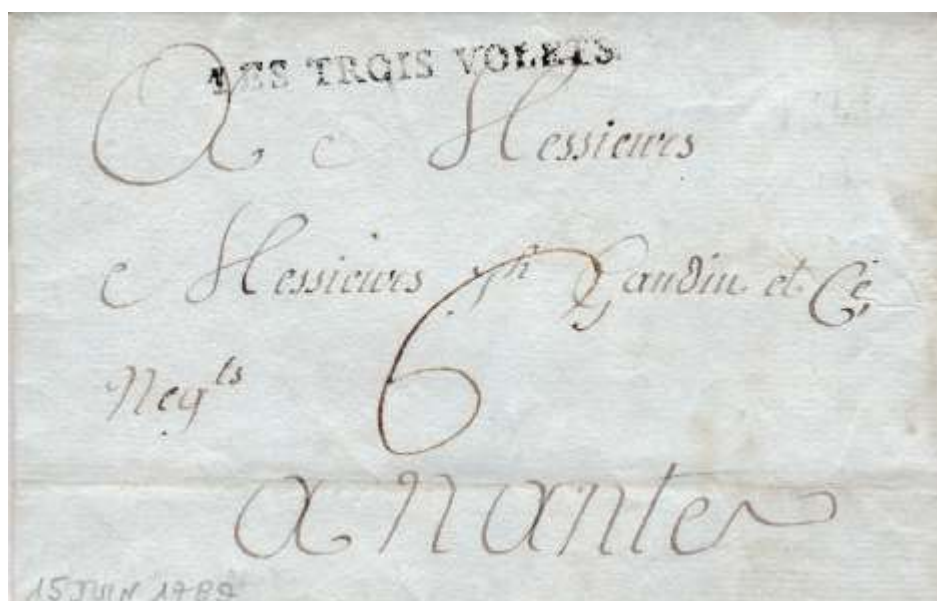 LES TROIS VOLETS
A Messieurs
Messieurs Gaudin et Cie
Negts
6
a nantes
15 JUIN 1789